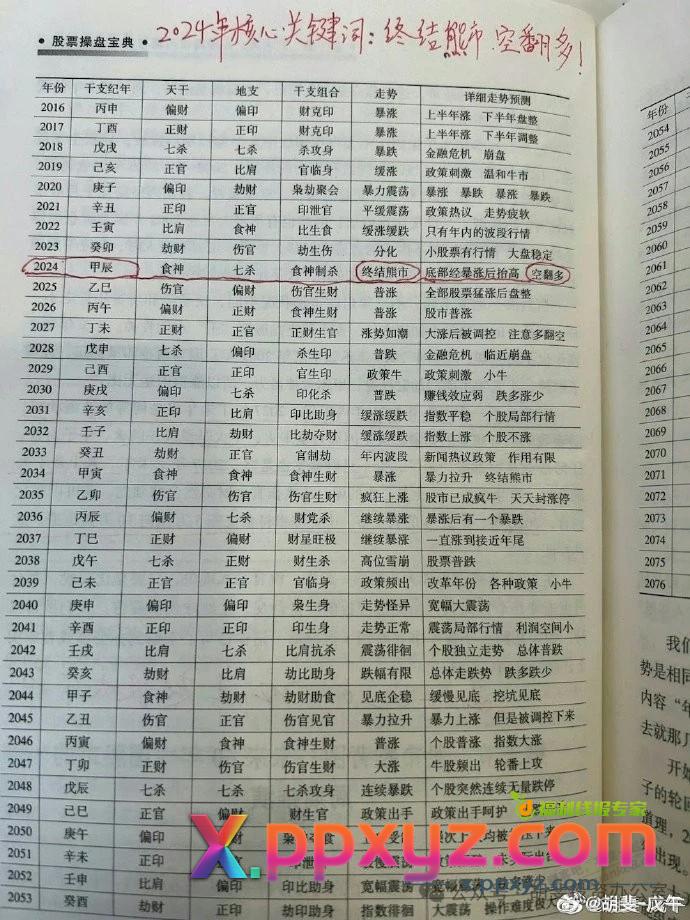 股票操盘宝典
2024年核心关键词:终结熊市、空翻多!
年份 干支纪年 天干 地支 干支组合 走势 详细走势预测
2016 丙申 偏财 偏印 财克印 暴涨 上半年涨 下半年盘整
2017 丁酉 正财 正印 财克印 暴涨 上半年涨 下半年调整
2018 戊戌 七杀 七杀 杀攻身 暴跌 金融危机 崩盘
2019 己亥 正官 比肩 官临身 缓涨 政策刺激 温和牛市
2020 庚子 偏印 劫财 枭劫聚会 暴力震荡 暴涨 暴跌 暴涨 暴跌
2021 辛丑 正印 正官 印泄官 平缓震荡 政策热议 走势疲软
2022 壬寅 比肩 食神 比生食 缓涨缓跌 只有年内的波段行情
2023 癸卯 劫财 伤官 劫生伤 分化 小股票有行情 大盘稳定
2024 甲辰 食神 七杀 食神制杀 终结熊市 底部经暴涨后抬高 空翻多
2025 乙巳 伤官 偏财 伤官生财 普涨 全部股票猛涨后盘整
2026 丙午 偏财 正财 食神生财 普涨 股市普涨
2027 丁未 正财 正官 正财生官 涨势如潮 大涨后被调控 注意多翻空
2028 戊申 七杀 偏印 杀生印 普跌 金融危机 临近崩盘
2029 己酉 正官 正印 官生印 政策牛 政策刺激 小牛
2030 庚戌 偏印 七杀 印化杀 普跌 赚钱效应弱 跌多涨少
2031 辛亥 正印 比肩 印比助身 缓涨缓跌 指数平稳 个股局部行情
2032 壬子 比肩 劫财 比劫夺财 缓涨缓跌 指数上涨 个股不涨
2033 癸丑 劫财 正官 官制劫 年内波段 新闻热议政策 作用有限
2034 甲寅 食神 食神 食神生财 暴涨 暴力拉升 终结熊市
2035 乙卯 伤官 伤官 伤官生财 疯狂上涨 股市已成疯牛 天天封涨停
2036 丙辰 偏财 七杀 财党杀 继续暴涨 暴涨后有一个暴跌
2037 丁巳 正财 偏财 财星旺极 继续暴涨 一直涨到接近年尾
2038 戊午 七杀 正财 财生杀 高位雪崩 股票普跌
2039 己未 正官 正官 官临身 政策频出 改革年份 各种政策 小牛
2040 庚申 偏印 偏印 枭生身 走势怪异 宽幅大震荡
2041 辛酉 正印 正印 印生身 走势正常 震荡局部行情 利润空间小
2042 壬戌 比肩 七杀 比肩抗杀 震荡徘徊 个股独立走势 总体普跌
2043 癸亥 劫财 比肩 劫比助身 跌幅有限 总体走跌势 跌多跌少
2044 甲子 食神 劫财 劫财助食 见底企稳 缓慢见底 挖坑见底
2045 乙丑 伤官 正官 伤官见官 暴力拉升 暴力上涨 但是被调控下来
2046 丙寅 偏财 食神 食神生财 普涨 个股普涨 指数大涨
2047 丁卯 正财 伤官 伤官生财 大涨 牛股频出 轮番上攻
2048 戊辰 七杀 七杀 七杀攻身 连续暴跌 个股突然连续无量跌停
2049 己巳 正官 偏财 财生官 政策出手 政策出手呵护
2050 庚午 偏印
2051 辛未 正印
2052 壬申 比肩 偏印 宽幅震荡
2053 癸酉 劫财 正印 指数徘徊 操作难度极大
年份
2054
2055
2056
2057
2058
2059
2060
2061
2062
2063
2064
2065
2066
2067
2068
2069
2070
2071
2072
2073
2074
2075
2076
我们
势是相同
内容“年
去就那几
开始
子的轮回
道理,2
会出现。
福利线报专家
X.ppxyz.com
@胡斐-戊午